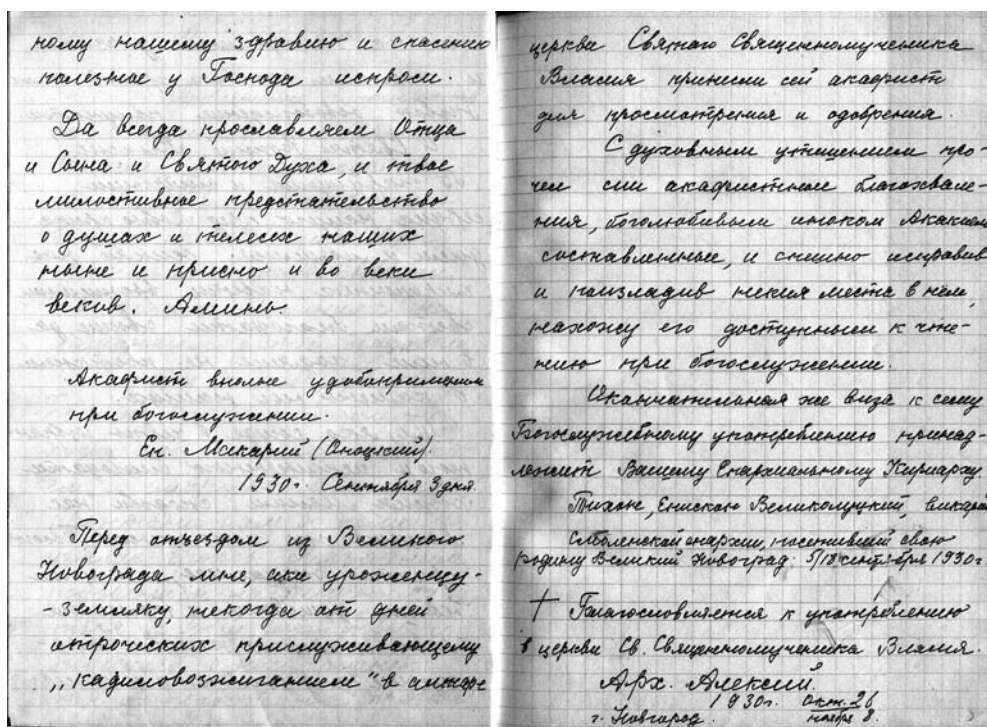 ному нашему здравию и спасению
полезное у Господа испроси.
Да всегда прославляем Отца
и Сына и Святого Духа, и твое
милостивное предстательство
о душах и телесех наших
ныне и присно и во веки
веков. Аминь.
Акафист вполне удобоприменим
при богослужении.
Еп. Макарий (Опоцкий).
1930 г. Сентября 3 дня.
Перед отъездом из Великого
Новограда мне, аки уроженцу-
-земляку, некогда от дней
отроческих прислуживающему
„кадиловозжиганием" в алтаре
церкви Святаго Священномученика
Власия принесли сей акафист
для просмотрения и одобрения.
С духовным утешением про-
чел сии акафистные благохвале-
ния, боголюбивым иноком Акакием
составленные, и спешно исправив
и поизладив некия места в нем,
нахожу его доступным к чте-
нию при богослужении.
Окончательная же виза к сему
Богослужебному употреблению принад-
лежит Вашему Епархиальному Кириарху.
Тихон, Епископ Великолуцкий, викарий
Смоленской епархии, посетивший свою
родину Великий Новоград. 5/18 сентября 1930 г.
† Благословляется к употреблению
в церкви Св. Священномученика Власия.
Арх. Алексий.
1930 г. окт. 26
г. Новгород. ноября 8.